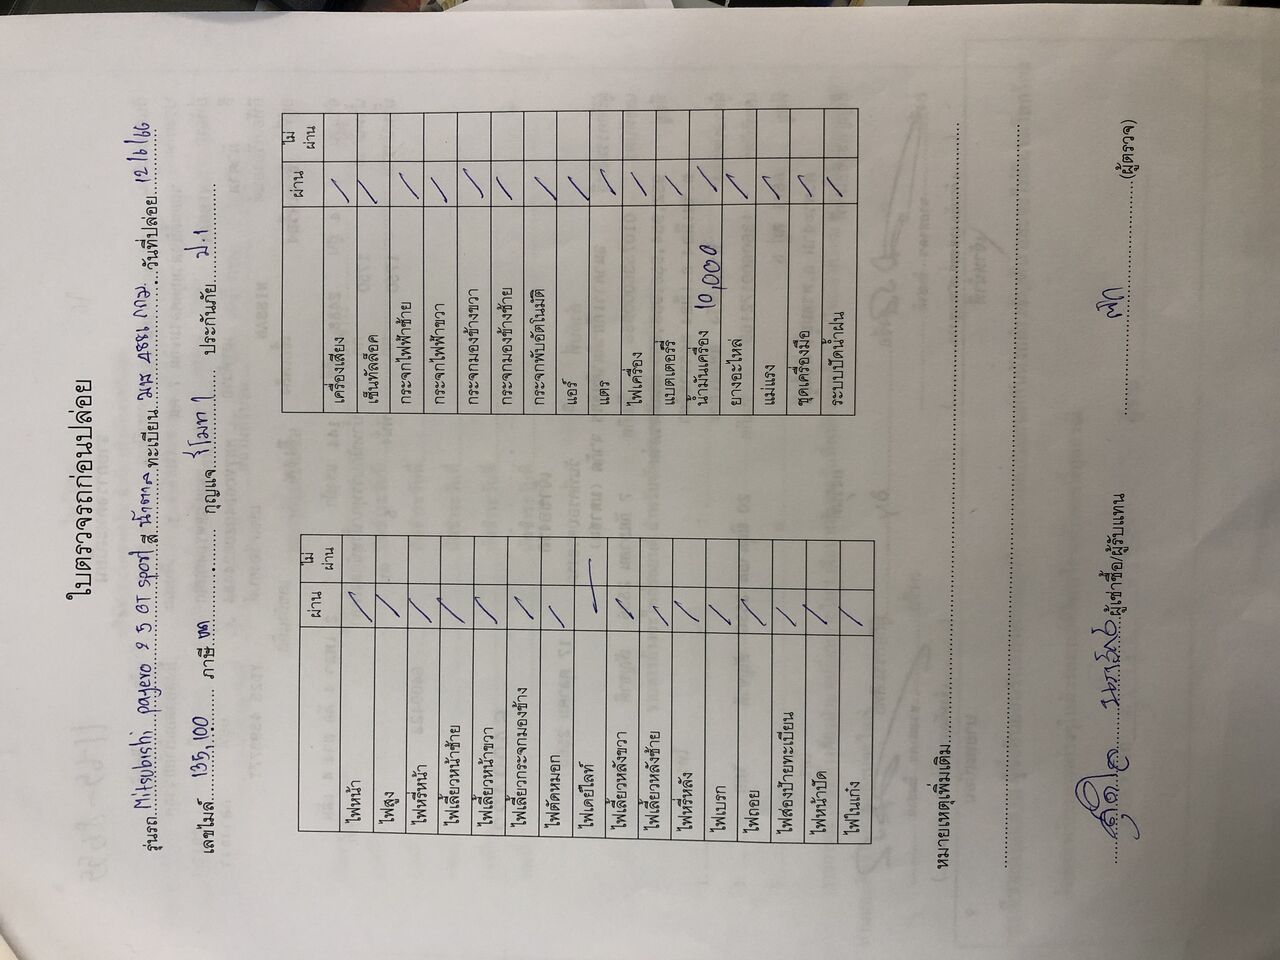 ใบตรวจรถก่อนปล่อย
รุ่นรถ Mitsubishi pajero 2.5 GT sport สี น้ำตาล ทะเบียน 4881 กทม. วันที่ปล่อย 12/6/66
เลขไมล์ 135,100 ภาษี กุญแจ รีโมท 1 ประกันภัย ป.1
ผ่าน ไม่ผ่าน
ไฟหน้า /
ไฟสูง /
ไฟหรี่หน้า /
ไฟเลี้ยวหน้าซ้าย /
ไฟเลี้ยวหน้าขวา /
ไฟเลี้ยวกระจกมองข้าง /
ไฟตัดหมอก /
ไฟเดย์ไลท์ —
ไฟเลี้ยวหลังขวา /
ไฟเลี้ยวหลังซ้าย /
ไฟหรี่หลัง /
ไฟเบรก /
ไฟถอย /
ไฟส่องป้ายทะเบียน /
ไฟหน้าปัด /
ไฟในเก๋ง /
ผ่าน ไม่ผ่าน
เครื่องเสียง /
เซ็นทัลล็อค /
กระจกไฟฟ้าซ้าย /
กระจกไฟฟ้าขวา /
กระจกมองข้างขวา /
กระจกมองข้างซ้าย /
กระจกพับอัตโนมัติ /
แอร์ /
แตร /
ไฟเครื่อง /
แบตเตอร์รี่ /
น้ำมันเครื่อง 10,000 /
ยางอะไหล่ /
แม่แรง /
ชุดเครื่องมือ /
ระบบปัดน้ำฝน /
(หมายเหตุเพิ่มเติม
ผู้เช่าซื้อ/ผู้รับแทน (ผู้ตรวจ)